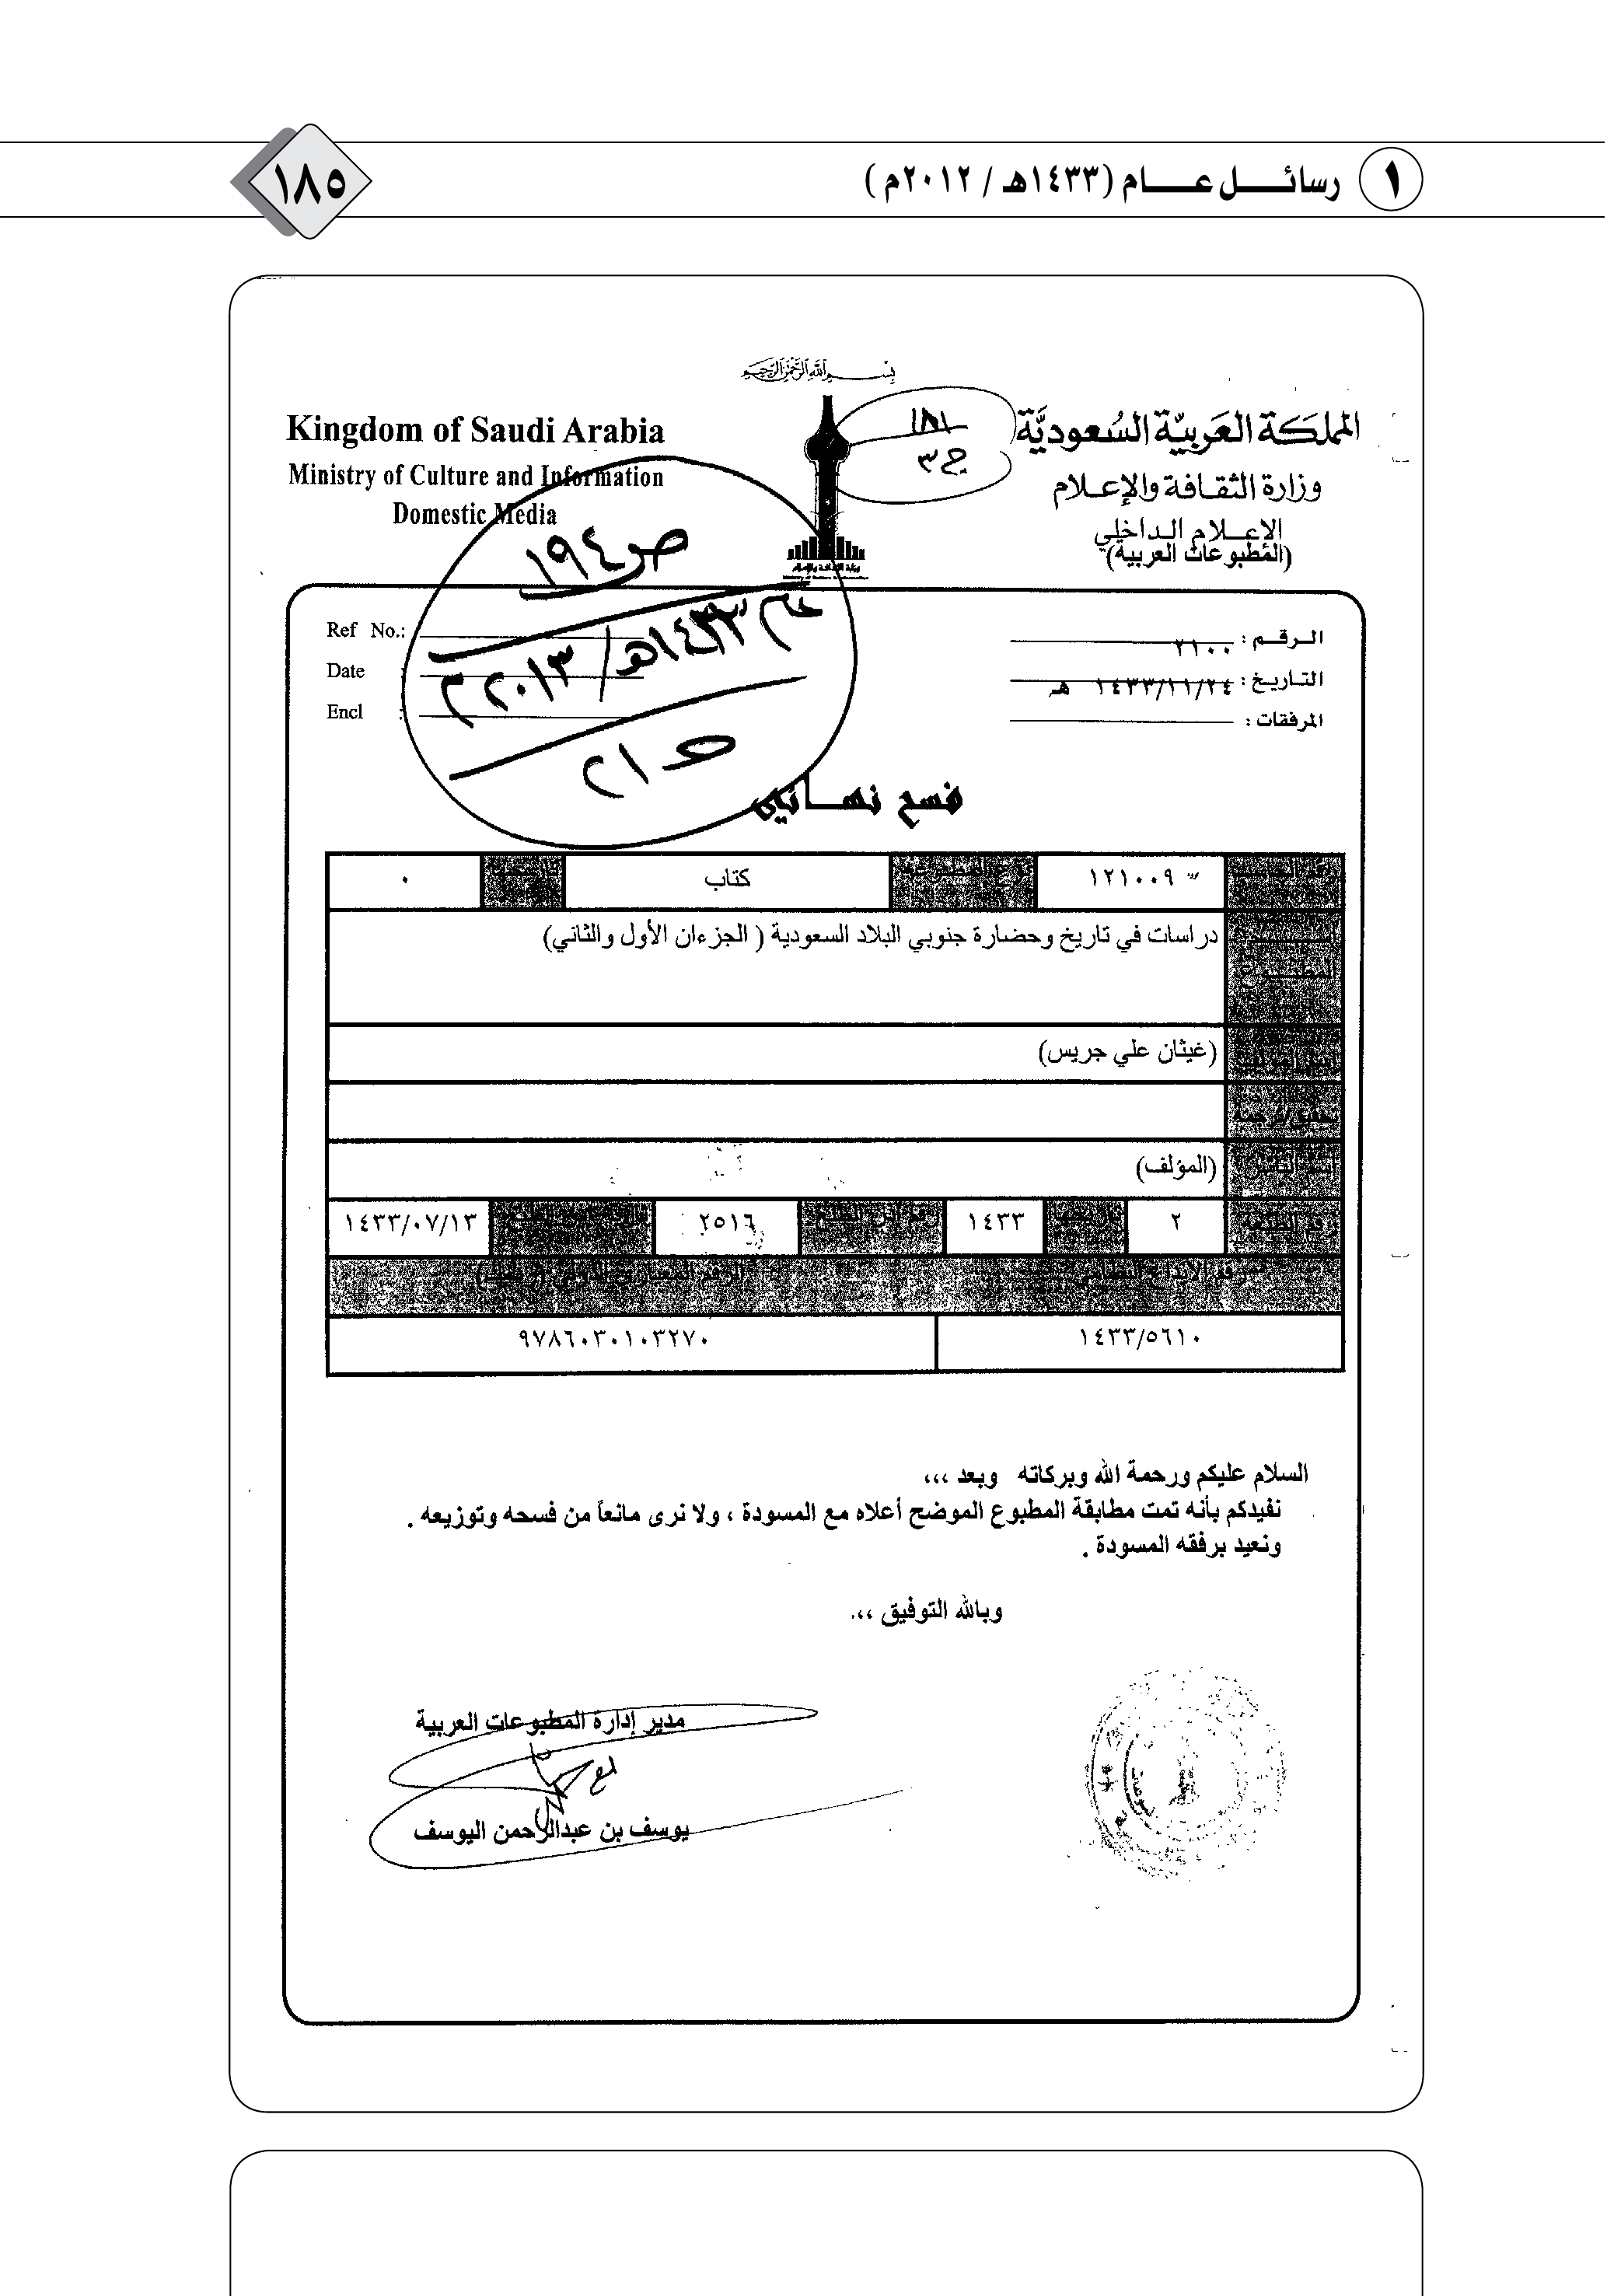 ١ رسائل عام (١٤٣٣هـ / ٢٠١٢م)
١٨٥
بسم الله الرحمن الرحيم
المملكة العربية السعودية
وزارة الثقافة والإعلام
الإعلام الداخلي
(المطبوعات العربية)
Kingdom of Saudi Arabia
Ministry of Culture and Information
Domestic Media
١٨١
ج٣
ص١٩٤
عام ١٤٣٣هـ/ ٢٠١٣م
الرقم : ٢١٠٠
التاريخ : ١٤٣٣/١١/٢٤ هـ
المرفقات :
Ref No.:
Date :
Encl :
فسح نهائي
١٢١٠٠٩ كتاب ٠
دراسات في تاريخ وحضارة جنوبي البلاد السعودية ( الجزءان الأول والثاني)
(غيثان علي جريس)
اسم الناشر (المؤلف)
رقم الطبعة ٢ ١٤٣٣ ٢٥١٦ ١٤٣٣/٠٧/١٣
١٤٣٣/٥٦١٠ ٩٧٨٦٠٣٠١٠٣٢٧٠
السلام عليكم ورحمة الله وبركاته وبعد ،،،
نفيدكم بأنه تمت مطابقة المطبوع الموضح أعلاه مع المسودة ، ولا نرى مانعاً من فسحه وتوزيعه .
ونعيد برفقه المسودة .
وبالله التوفيق ،،،
مدير إدارة المطبوعات العربية
يوسف بن عبدالرحمن اليوسف